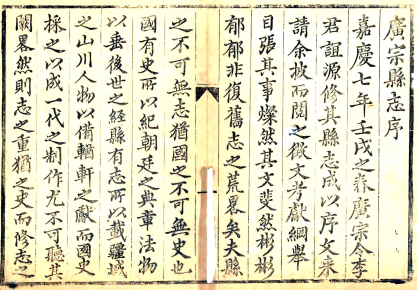 廣宗縣志序
嘉慶七年壬戌之春廣宗令李
君誼源修其縣志成以序文来
請余披而閱之徵文考獻綱舉
目張其事燦然其文斐然彬彬
郁郁非復舊志之荒畧矣夫縣
之不可無志猶國之不可無史也
國有史所以紀朝廷之典章法物
以垂後世之經縣有志所以載疆域
之山川人物以備輶軒之獻而國史
採之以成一代之制作尤不可聽其
闕畧然則志之重猶之史而修志之